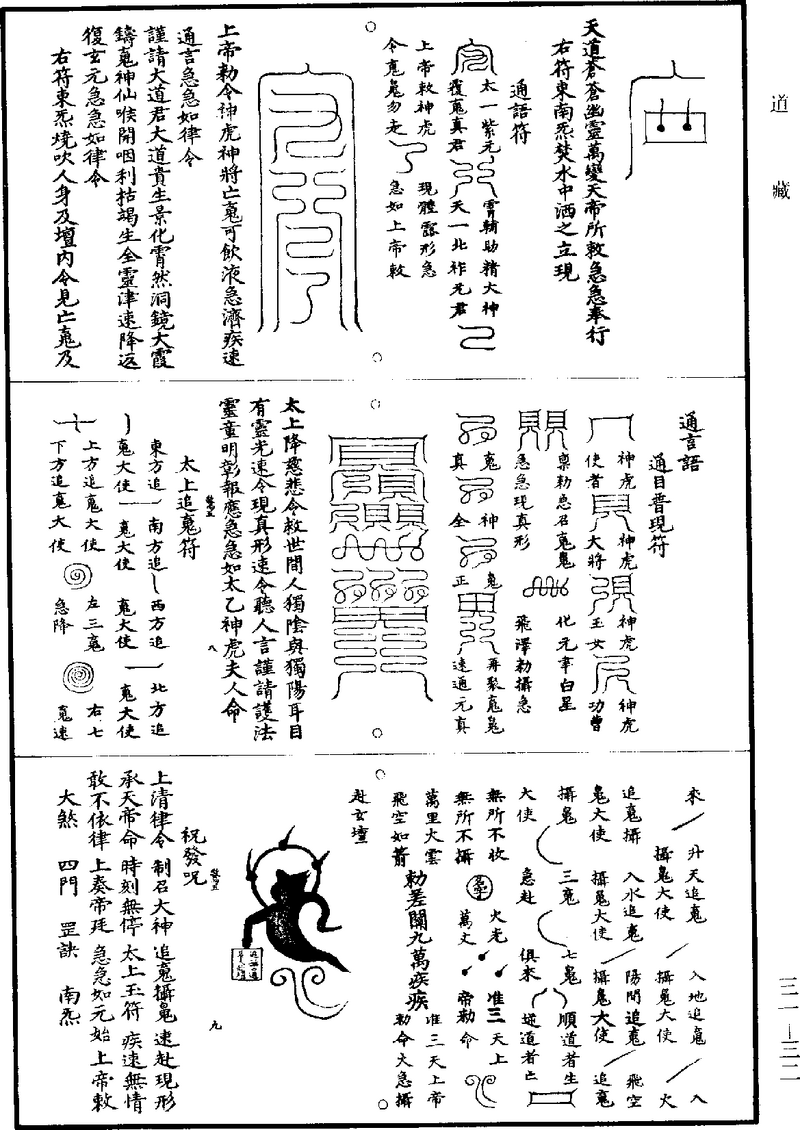 道藏
天道蒼蒼幽靈萬變天帝所敕急急奉行
右符東南炁焚水中洒之立現
通語符
太一紫元
霄輔助精大神
覆䰟真君
天一北祚元君
上帝敕神虎
現體露形急
令䰟䰟勿走
急如上帝敕
上帝勑令神虎神將亡䰟可飲液急濟疾速
通言急急如律令
謹請大道君大道貴生景化霄然洞鏡大霞
鑄䰟神仙喉開咽利枯竭生全靈津速降返
復玄元急急如律令
右符東炁燒吹人身及壇內令見亡䰟及
通言語
通目普現符
神虎
使者
神虎
大將
神虎
玉女
神虎
功曹
禀勑急召䰟䰟
急急現真形
化元宰白星
飛澤勑攝急
䰟
真
神
全
䰟
正
再聚䰟䰟
速通元真
太上降慈悲令救世間人獨陰與獨陽耳目
有靈光速令現真形速令聽人言謹請護法
靈童明彰報應急急如太乙神虎夫人命
八
太上追䰟符
東方追
䰟大使
南方追
䰟大使
西方追
䰟大使
北方追
䰟大使
上方追䰟大使
下方追䰟大使
左三䰟
急降
右七
䰟速
來
升天追䰟
攝䰟大使
入地追䰟
攝䰟大使
入
火
追䰟攝
䰟大使
入水追䰟
攝䰟大使
陽間追䰟
攝䰟大使
飛空
追䰟
攝䰟
大使
三䰟
急赴
七䰟
俱來
順道者生
逆道者亡
無所不收
無所不攝
火光
萬丈
准三天上
帝勑命
萬里大雲
飛空如箭
勑差闌九萬疾疾
准三天上帝
勑命火急攝
赴玄壇
祝發呪
上清律令 制召大神 追䰟攝䰟 速赴現形
承天帝命 時刻無停 太上玉符 疾速無情
敢不依律 上奏帝廷 急急如元始上帝敕
大煞 四門 罡訣 南炁
九
三一—三二